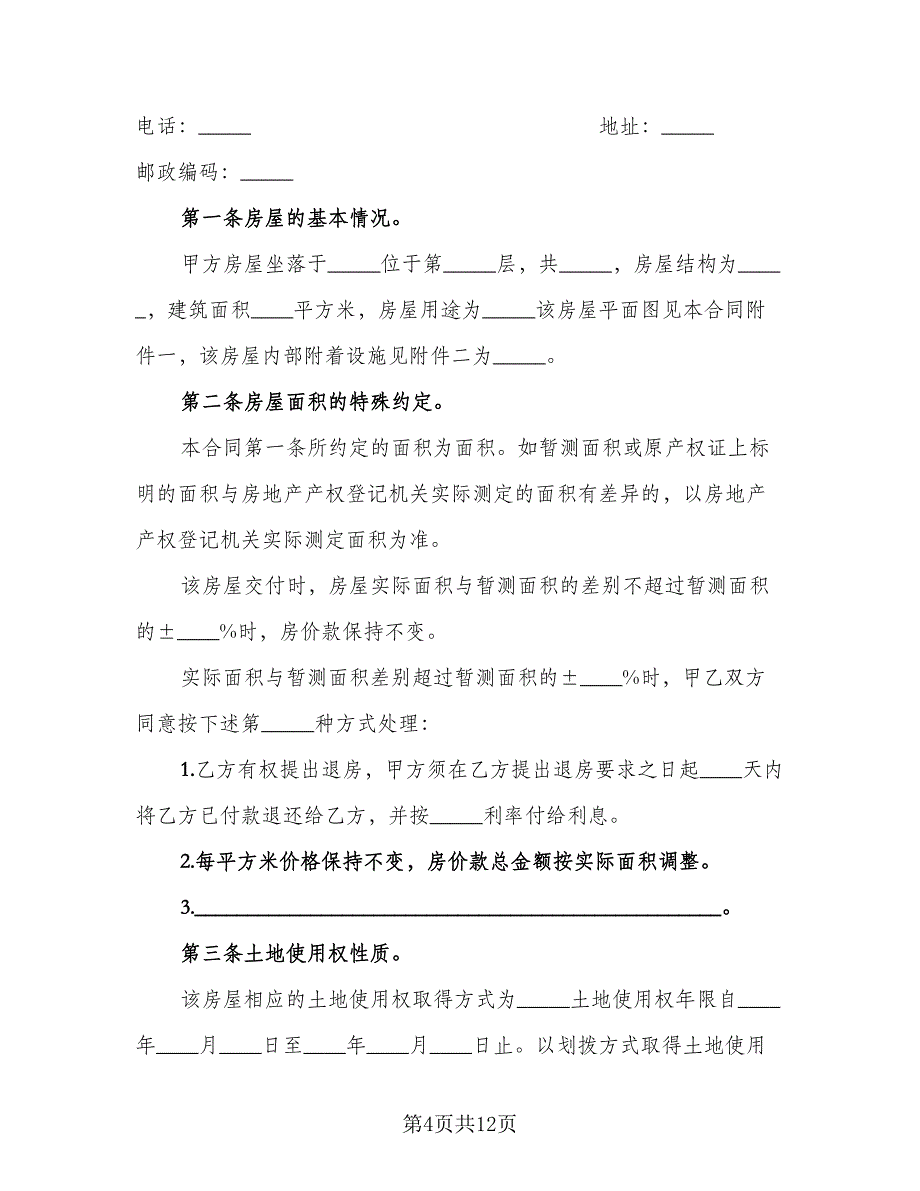 电话：_____ 地址：_____
邮政编码：_____
第一条房屋的基本情况。
甲方房屋坐落于_____位于第_____层，共_____，房屋结构为____
_，建筑面积____平方米，房屋用途为_____该房屋平面图见本合同附
件一，该房屋内部附着设施见附件二为_____。
第二条房屋面积的特殊约定。
本合同第一条所约定的面积为面积。如暂测面积或原产权证上标
明的面积与房地产产权登记机关实际测定的面积有差异的，以房地产
产权登记机关实际测定面积为准。
该房屋交付时，房屋实际面积与暂测面积的差别不超过暂测面积
的±____%时，房价款保持不变。
实际面积与暂测面积差别超过暂测面积的±____%时，甲乙双方
同意按下述第_____种方式处理：
1.乙方有权提出退房，甲方须在乙方提出退房要求之日起____天内
将乙方已付款退还给乙方，并按_____利率付给利息。
2.每平方米价格保持不变，房价款总金额按实际面积调整。
3.__________________________________________________。
第三条土地使用权性质。
该房屋相应的土地使用权取得方式为_____土地使用权年限自____
年____月____日至____年____月____日止。以划拨方式取得土地使用
第4页共12页